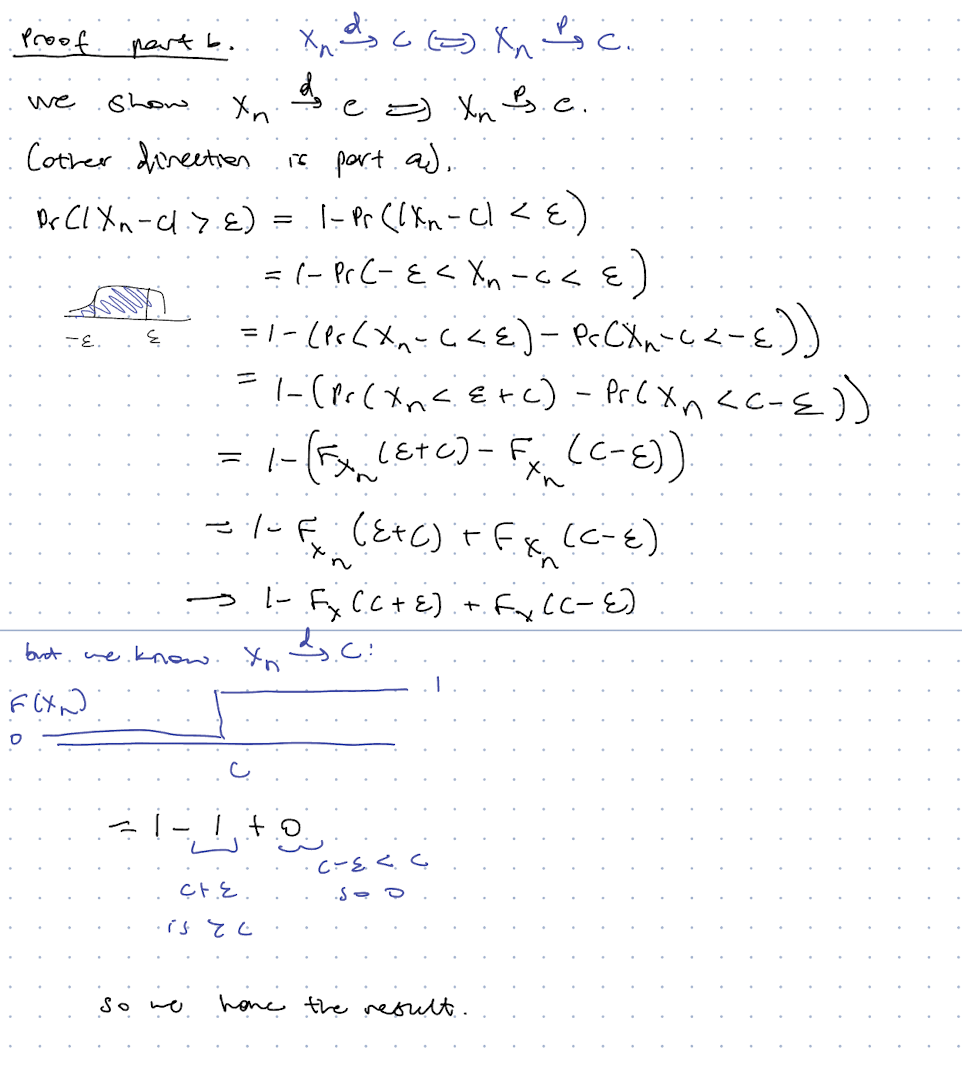 Proof part b. Xn →d c ⟺ Xn →p c.
we show Xn →d c ⟹ Xn →p c.
(other direction is part a).
Pr(|Xn-c| > ε) = 1-Pr(|Xn-c| < ε)
= 1-Pr(-ε < Xn-c < ε)
-ε ε
= 1-(Pr(Xn-c < ε) - Pr(Xn-c < -ε))
= 1-(Pr(Xn < ε+c) - Pr(Xn < c-ε))
= 1-(F_Xn(ε+c) - F_Xn(c-ε))
= 1- F_Xn(ε+c) + F_Xn(c-ε)
→ 1- F_X(c+ε) + F_X(c-ε)
but we know Xn →d c:
F(Xn) 1
0
c
= 1 - 1 + 0
c-ε < c
c+ε so 0
is ≥ c
so we have the result.